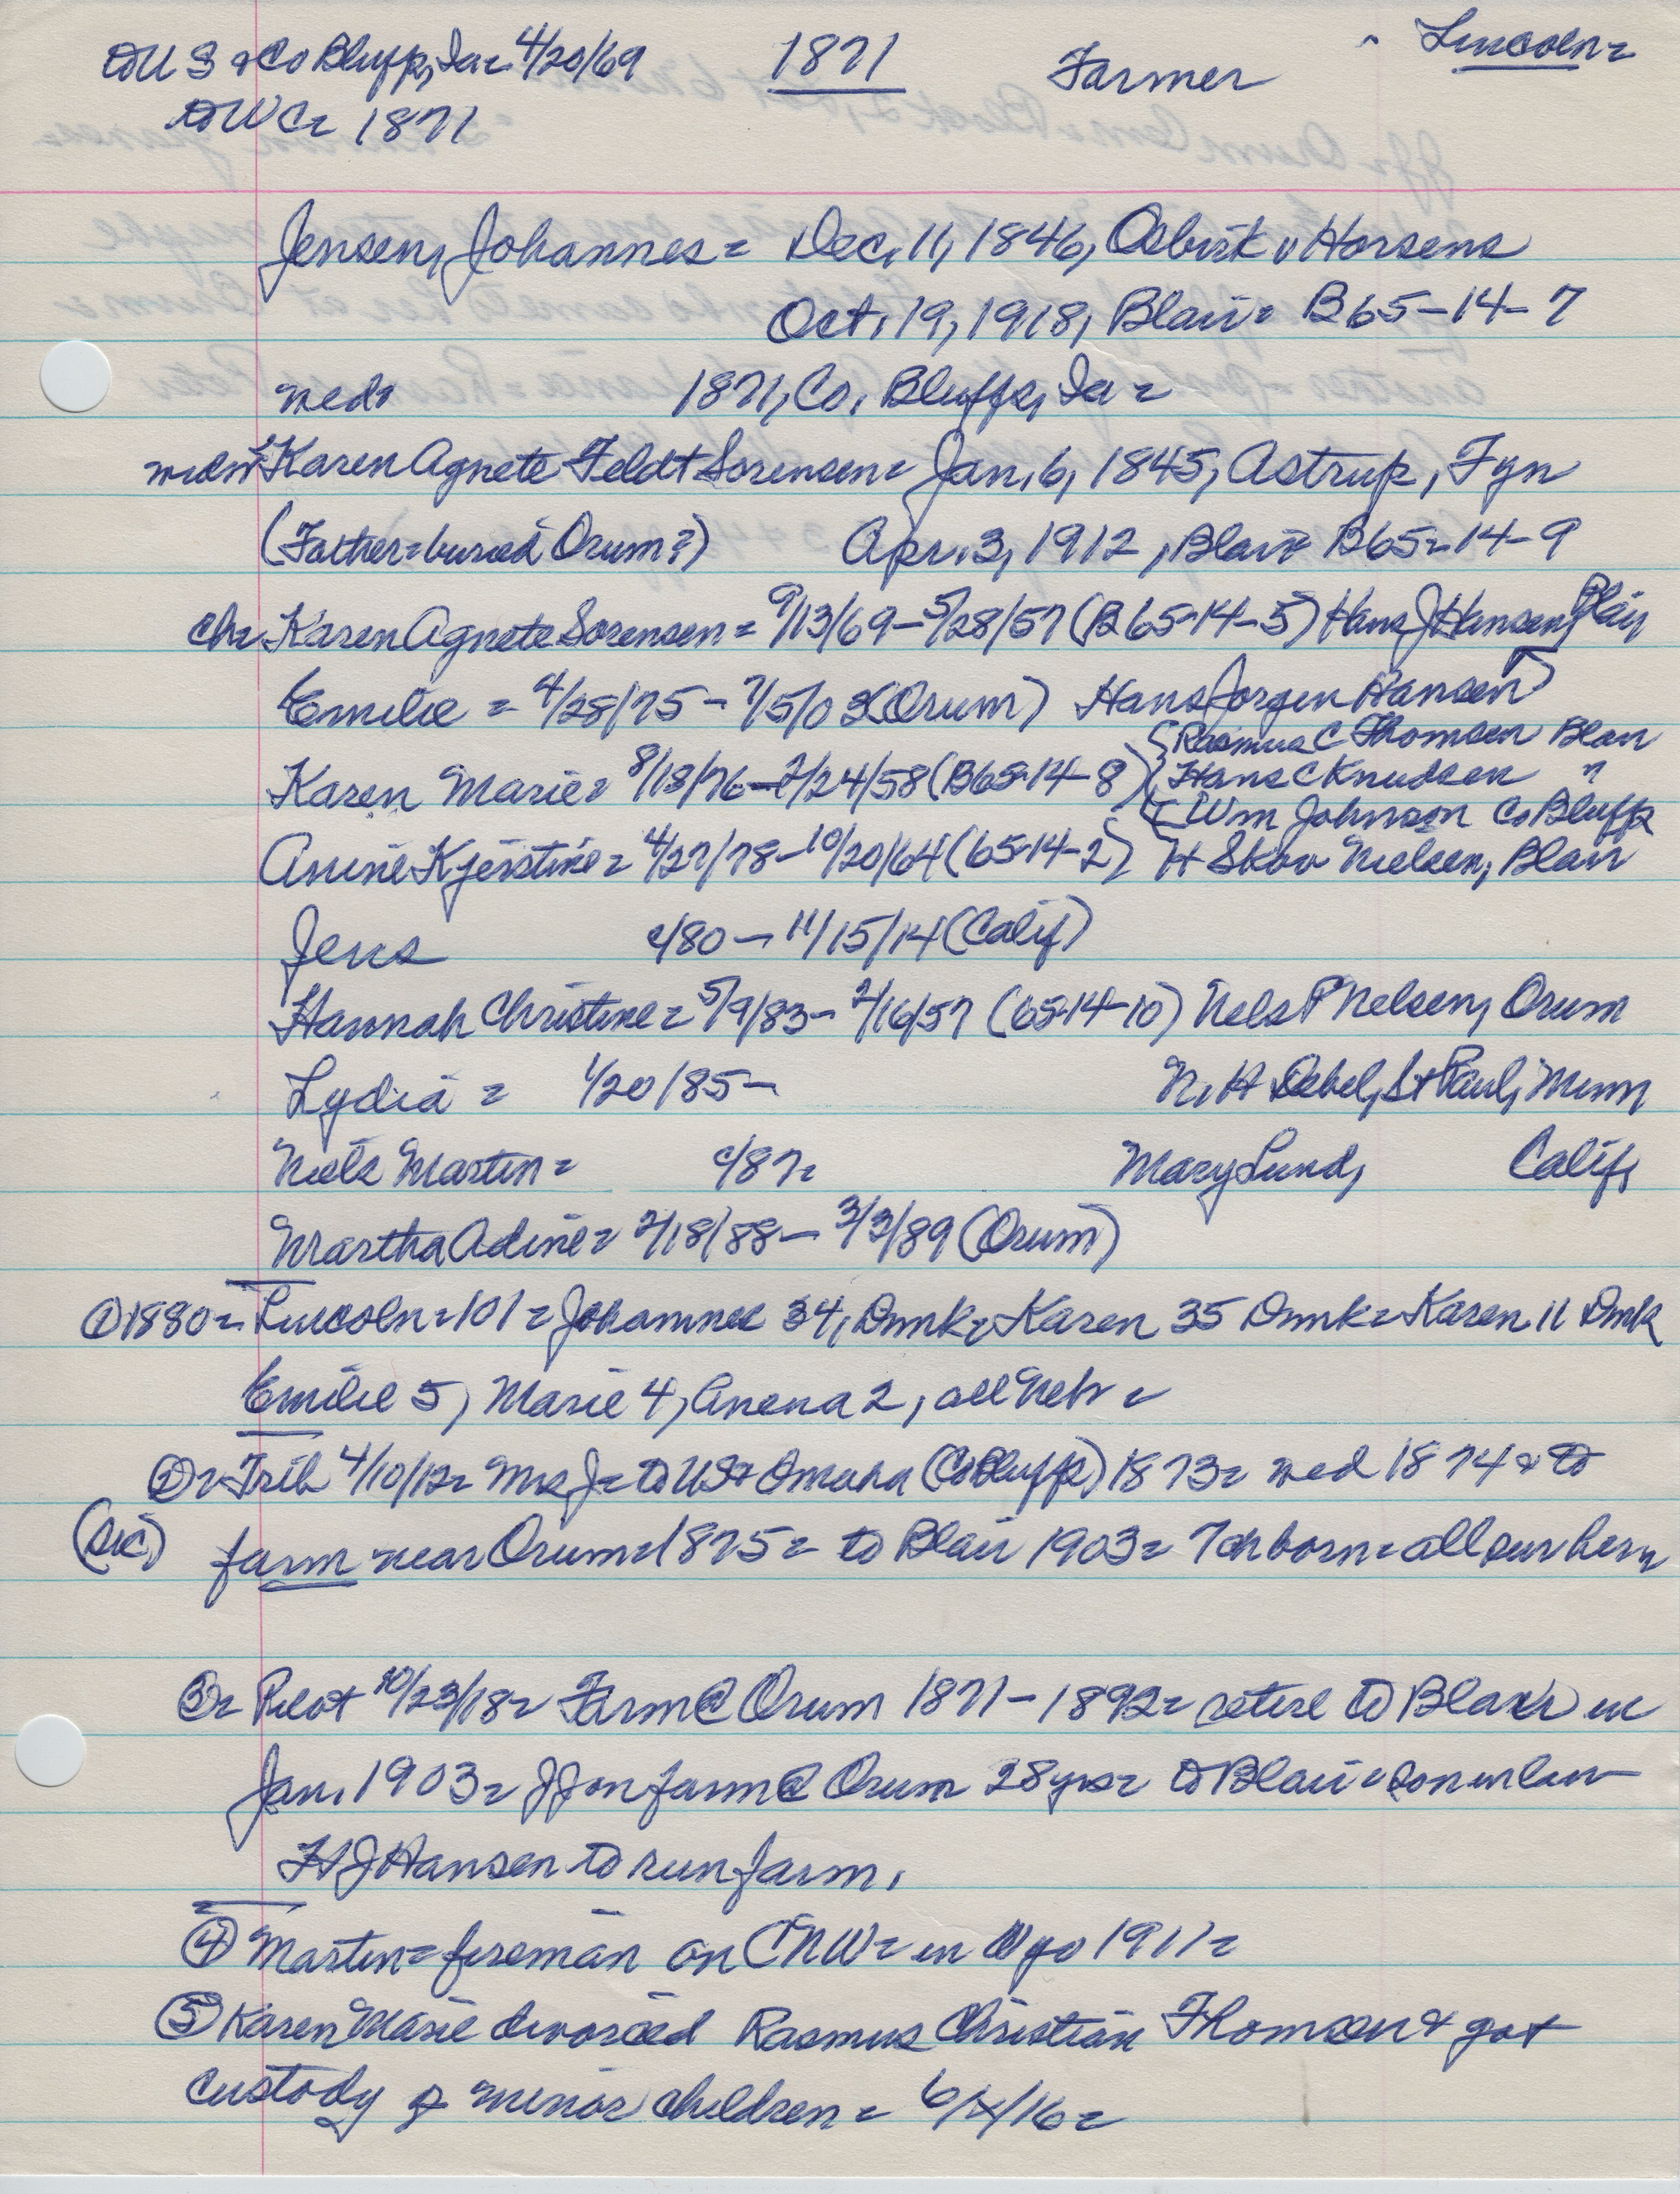 to US & Co Bluffs, Ia = 4/20/69 1871 Farmer Lincoln =
to WC = 1871
Jensen, Johannes = Dec. 11, 1846, Osbirk v Horsens
Oct. 19, 1918, Blair = B65-14-7
wed = 1871, Co. Bluffs, Ia =
widw Karen Agnete Feldt Sorensen = Jan. 6, 1845, Astrup, Fyn
(Father = buried Orum?) Apr. 3, 1912, Blair B65-14-9
ch = Karen Agnete Sorensen = 9/13/69-5/28/57 (B65-14-5) Hans J Hansen, Blair
Emilie = 4/28/75 - 7/5/03 (Orum) Hans Jorgen Hansen
{Rasmus C Thomsen Blair
Karen Marie = 8/13/76-2/24/58 (B65-14-8) {Hans C Knudsen "
{Wm Johnson Co Bluffs
Anine Kjerstine = 4/27/78-10/20/64 (65-14-2) H Skov Nielsen, Blair
Jens c/80 - 11/15/14 (Calif)
Hannah Christine = 5/9/83 - 2/16/57 (65-14-10) Nels P Nelsen, Orum
Lydia = 1/20/85 - N. H Debel, St Paul, Minn
Niels Martin = c/87 = Mary Lund, Calif,
Martha Adine = 2/18/88 - 3/3/89 (Orum)
① 1880 = Lincoln = 101 = Johannes 34, Dmk = Karen 35 Dmk = Karen 11 Dmk
Emilie 5, Marie 4, Anena 2, all Nebr =
② = Trib 4/10/12 = Mrs J = to US & Omaha (Co Bluffs) 1873 = wed 1874 & to
(sic) farm near Orum = 1875 = to Blair 1903 = 7 ch born = all surv her =
③ = Pilot 10/23/18 = Farm @ Orum 1871-1892 = retire to Blair in
Jan. 1903 = JJ on farm @ Orum 28 yrs = to Blair = son in law
HJ Hansen to run farm.
④ Martin = fireman on CNW = in Wyo 1911 =
⑤ Karen Marie divorced Rasmus Christian Thomsen & got
custody of minor children = 6/x/16 =